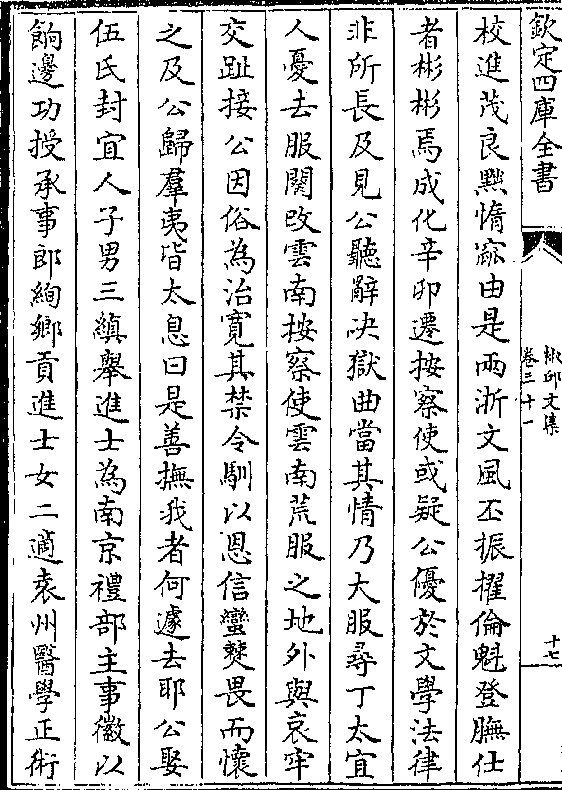 欽定四庫全書
椒邱文集
卷三十一
十七
校進茂良黜惰窳由是兩浙文風丕振擢倫魁登膴仕
者彬彬焉成化辛卯遷按察使或疑公優於文學法律
非所長及見公聽辭决獄曲當其情乃大服尋丁太宜
人憂去服闋改雲南按察使雲南荒服之地外與哀牢
交趾接公因俗為治寛其禁令馴以恩信蠻僰畏而懷
之及公歸羣夷皆太息曰是善撫我者何遽去耶公娶
伍氏封宜人子男三縝舉進士為南京禮部主事徽以
餉邊功授承事郎絢鄉貢進士女二適袁州醫學正術